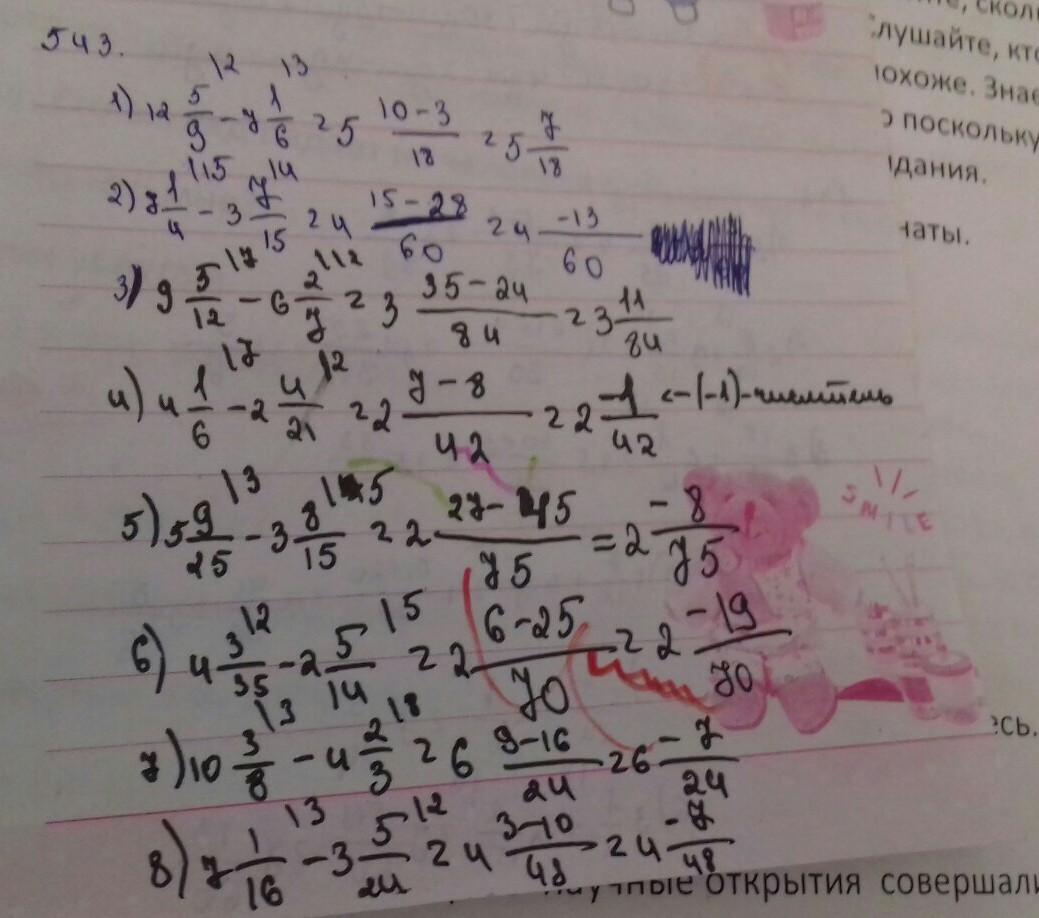 543.
1) 12 5/9 |2 - 7 1/6 |3 = 5 (10-3)/18 = 5 7/18
2) 7 1/4 |15 - 3 7/15 |4 = 4 (15-28)/60 = 4 -13/60
3) 9 5/12 |7 - 6 2/7 |12 = 3 (35-24)/84 = 3 11/84
4) 4 1/6 |7 - 2 4/21 |2 = 2 (7-8)/42 = 2 -1/42 <-(-1)-числитель
5) 5 9/25 |3 - 3 8/15 |5 = 2 (27-45)/75 = 2 -8/75
6) 4 3/35 |2 - 2 5/14 |5 = 2 (6-25)/70 = 2 -19/70
7) 10 3/8 |3 - 4 2/3 |8 = 6 (9-16)/24 = 6 -7/24
8) 7 1/16 |3 - 3 5/24 |2 = 4 (3-10)/48 = 4 -7/48
SMILE
слушайте, кто
похоже. Знае
поскольку
идания.
наты.
есь.
научные открытия совершал